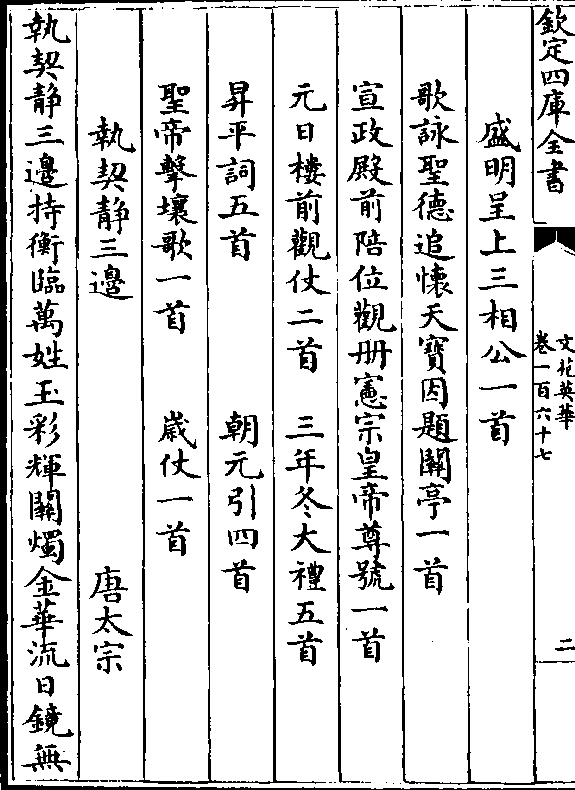 欽定四庫全書
文苑英華
卷一百六十七
二
盛明呈上三相公一首
歌詠聖德追懷天寶因題關亭一首
宣政殿前陪位觀册憲宗皇帝尊號一首
元日樓前觀仗二首 三年冬大禮五首
昇平詞五首 朝元引四首
聖帝擊壤歌一首 歳仗一首
執契静三邊 唐太宗
執契静三邊持衡臨萬姓玉彩輝關燭金華流日鏡無